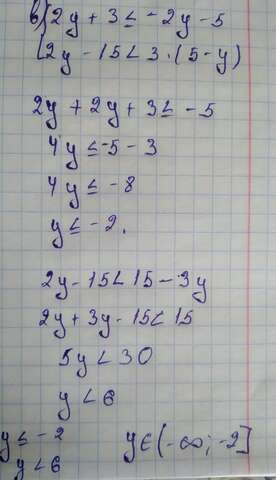 в) {2y + 3 ≤ -2y - 5
{2y - 15 < 3 · (5 - y)
2y + 2y + 3 ≤ -5
4y ≤ -5 - 3
4y ≤ -8
y ≤ -2.
2y - 15 < 15 - 3y
2y + 3y - 15 < 15
5y < 30
y < 6
y ≤ -2
y < 6
y ∈ (-∞; -2]